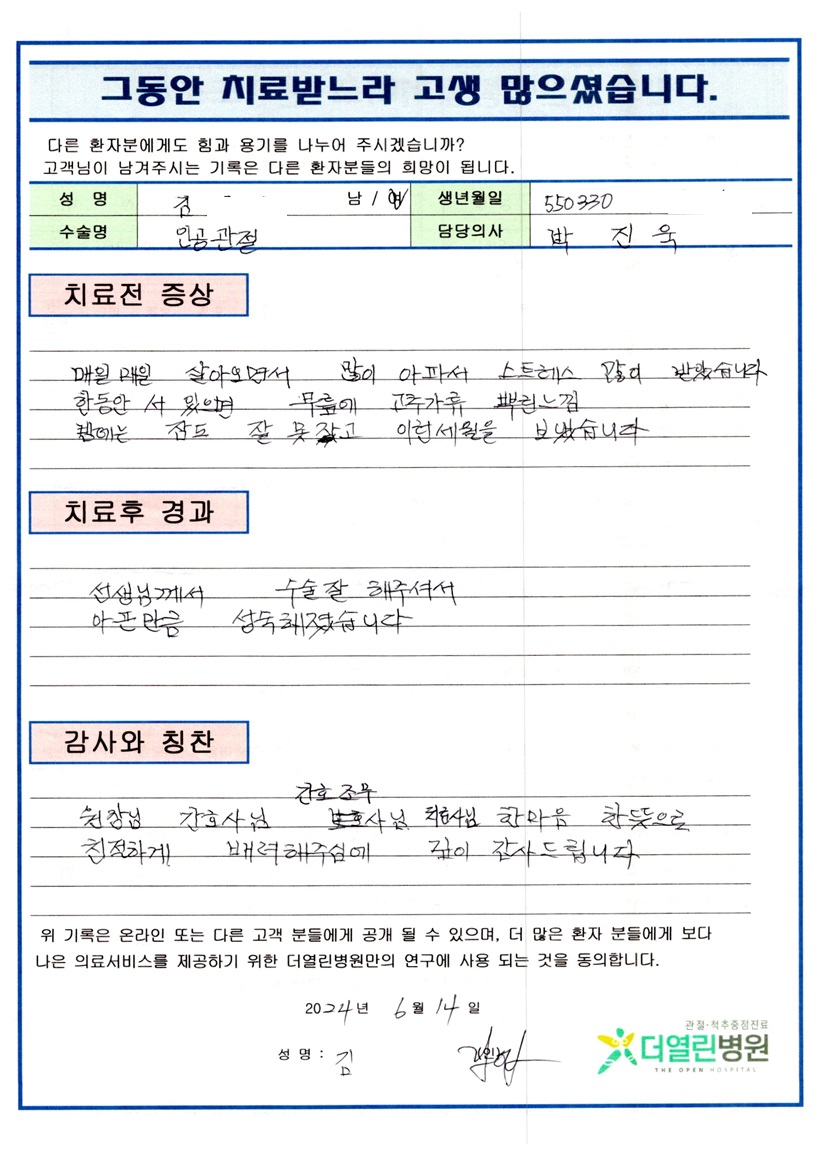 그동안 치료받느라 고생 많으셨습니다.
다른 환자분에게도 힘과 용기를 나누어 주시겠습니까?
고객님이 남겨주시는 기록은 다른 환자분들의 희망이 됩니다.
성 명 김 남 / 여 생년월일 550330
수술명 인공관절 담당의사 박 진 욱
치료전 증상
매일매일 살아오면서 많이 아파서 스트레스 많이 받았습니다
한동안 서 있으면 무릎에 고추가류 뿌린느낌
밤에는 잠도 잘 못 잤고 이런세월을 보냈습니다
치료후 경과
선생님께서 수술잘 해주셔서
아픈만큼 성숙해졌습니다
감사와 칭찬
간호조무
원장님 간호사님 사님 치료사님 한마음 한뜻으로
친절하게 배려해주심에 깊이 감사드립니다
위 기록은 온라인 또는 다른 고객 분들에게 공개 될 수 있으며, 더 많은 환자 분들에게 보다
나은 의료서비스를 제공하기 위한 더열린병원만의 연구에 사용 되는 것을 동의합니다.
2024년 6월 14일
성 명 : 김
관절·척추중점진료
더열린병원
THE OPEN HOSPITAL